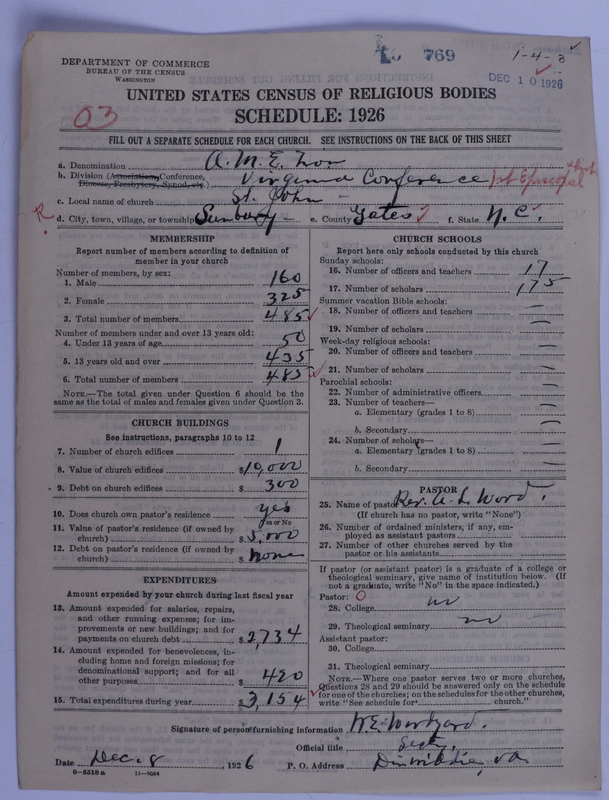 769
1-4-3
DEPARTMENT OF COMMERCE
BUREAU OF THE CENSUS
WASHINGTON
DEC 10 1926
UNITED STATES CENSUS OF RELIGIOUS BODIES
SCHEDULE: 1926
03
FILL OUT A SEPARATE SCHEDULE FOR EACH CHURCH. SEE INSTRUCTIONS ON THE BACK OF THIS SHEET
a. Denomination A. M. E. Zion
b. Division (Association, Conference, Diocese, Presbytery, Synod, etc.) Virginia Conference 1st Episcopal
c. Local name of church St. John
R
d. City, town, village, or township Sunbury e. County Gates f. State N. C.
MEMBERSHIP
Report number of members according to definition of
member in your church
Number of members, by sex:
1. Male 160
2. Female 325
3. Total number of members 485
Number of members under and over 13 years old:
4. Under 13 years of age 50
5. 13 years old and over 435
6. Total number of members 485
NOTE.—The total given under Question 6 should be
same as the total of males and females given under Question 3.
CHURCH BUILDINGS
See instructions, paragraphs 10 to 12
7. Number of church edifices 1
8. Value of church edifices $10,000
9. Debt on church edifices $ 300
10. Does church own pastor's residence yes
Yes or No
11. Value of pastor's residence (if owned by
church) $5,000
12. Debt on pastor's residence (if owned by
church) $ none
EXPENDITURES
Amount expended by your church during last fiscal year
13. Amount expended for salaries, repairs,
and other running expenses; for im-
provements or new buildings; and for
payments on church debt $2,734
14. Amount expended for benevolences, in-
cluding home and foreign missions; for
denominational support; and for all
other purposes $ 420
15. Total expenditures during year $3,154
CHURCH SCHOOLS
Report here only schools conducted by this church
Sunday schools:
16. Number of officers and teachers 17
17. Number of scholars 175
Summer vacation Bible schools:
18. Number of officers and teachers —
19. Number of scholars —
Week-day religious schools:
20. Number of officers and teachers —
21. Number of scholars —
Parochial schools:
22. Number of administrative officers —
23. Number of teachers—
a. Elementary (grades 1 to 8) —
b. Secondary —
24. Number of scholars—
a. Elementary (grades 1 to 8) —
b. Secondary —
PASTOR
25. Name of pastor Rev. A. L. Word.
(If church has no pastor, write "None")
26. Number of ordained ministers, if any, em-
ployed as assistant pastors
27. Number of other churches served by the
pastor or his assistants
If pastor (or assistant pastor) is a graduate of a college or
theological seminary, give name of institution below. (If
not a graduate, write "No" in the space indicated.)
Pastor: 0
28. College no
29. Theological seminary no
Assistant pastor:
30. College
31. Theological seminary
NOTE.—Where one pastor serves two or more churches,
Questions 28 and 29 should be answered only on the schedule
for one of the churches; on the schedules for the other churches,
write "See schedule for church."
Signature of person furnishing information W. E.
Official title Secty.
Date Dec. 8 1926 P. O. Address Dinwiddie, Va
8-5318a 11-9054